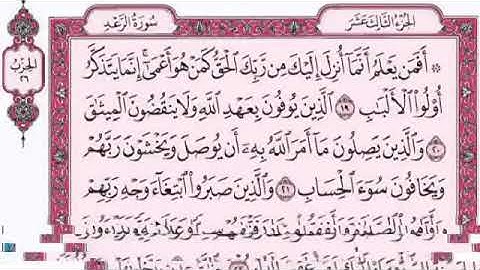 الجزء الثالث عشر
سورة الرعد
الحزب
٢٦
۞ أَفَمَن يَعْلَمُ أَنَّمَا أُنزِلَ إِلَيْكَ مِن رَّبِّكَ الْحَقُّ كَمَنْ هُوَ أَعْمَىٰ إِنَّمَا يَتَذَكَّرُ
أُولُوا الْأَلْبَٰبِ ١٩ الَّذِينَ يُوفُونَ بِعَهْدِ اللَّهِ وَلَا يَنقُضُونَ الْمِيثَٰقَ
٢٠ وَالَّذِينَ يَصِلُونَ مَا أَمَرَ اللَّهُ بِهِ أَن يُوصَلَ وَيَخْشَوْنَ رَبَّهُمْ
وَيَخَافُونَ سُوءَ الْحِسَابِ ٢١ وَالَّذِينَ صَبَرُوا ابْتِغَاءَ وَجْهِ رَبِّهِمْ